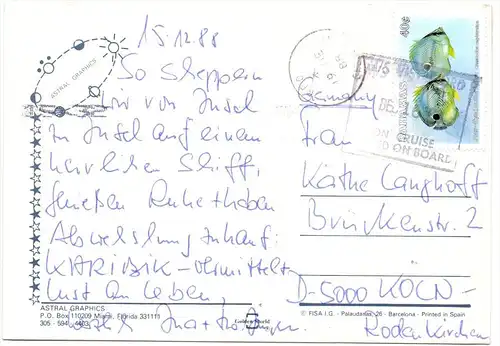 15.12.88
So shippern
wir von Insel
zu Insel auf einem
herrlichen Schiff,
genießen Ruhe + haben
Abwechslung zuhauf:
KARIBIK - vermittelt
Lust am Leben,
ASTRAL GRAPHICS
ASTRAL GRAPHICS
P.O. Box 110209 Miami, Florida 331111
305 - 594 - 4403
Golden World
© FISA I.G. - Palaudarias, 26 - Barcelona - Printed in Spain
40c
CRUISE
ON BOARD
Germany
Frau
Käthe Langhoff
Brückenstr. 2
D-5000 KÖLN-
Rodenkirchen